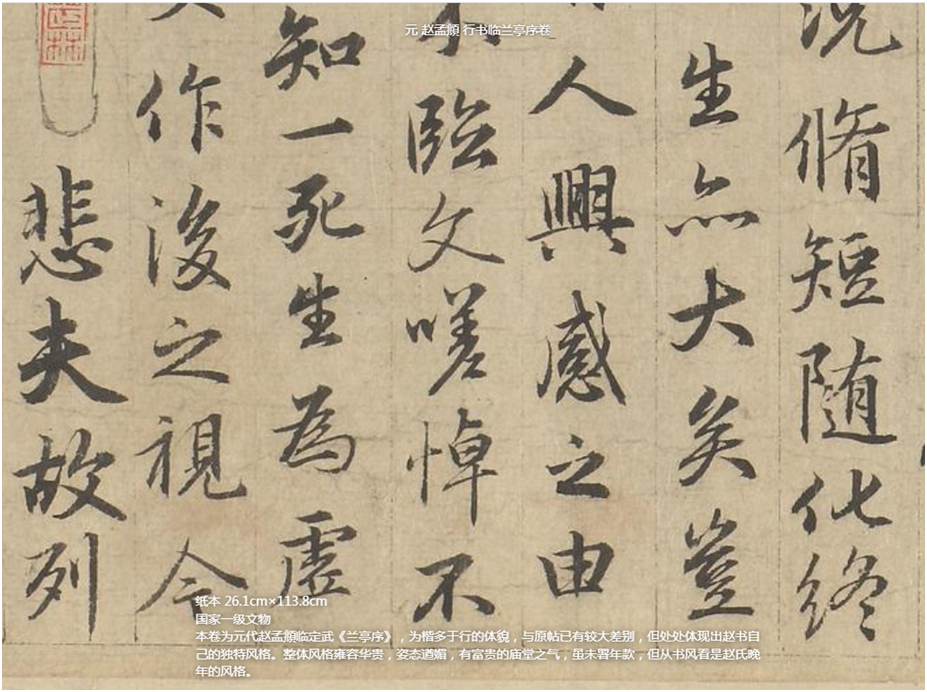 元 赵孟頫 行书临兰亭序卷
況脩短随化終
生亦大矣豈
人興感之由
臨文嗟悼不
知一死生為虛
作後之視今
悲夫故列
纸本 26.1cm×113.8cm
国家一级文物
本卷为元代赵孟頫临定武《兰亭序》，为楷多于行的体貌，与原帖已有较大差别，但处处体现出赵书自
己的独特风格。整体风格雍容华贵，姿态遒媚，有富贵的庙堂之气，虽未署年款，但从书风看是赵氏晚
年的风格。